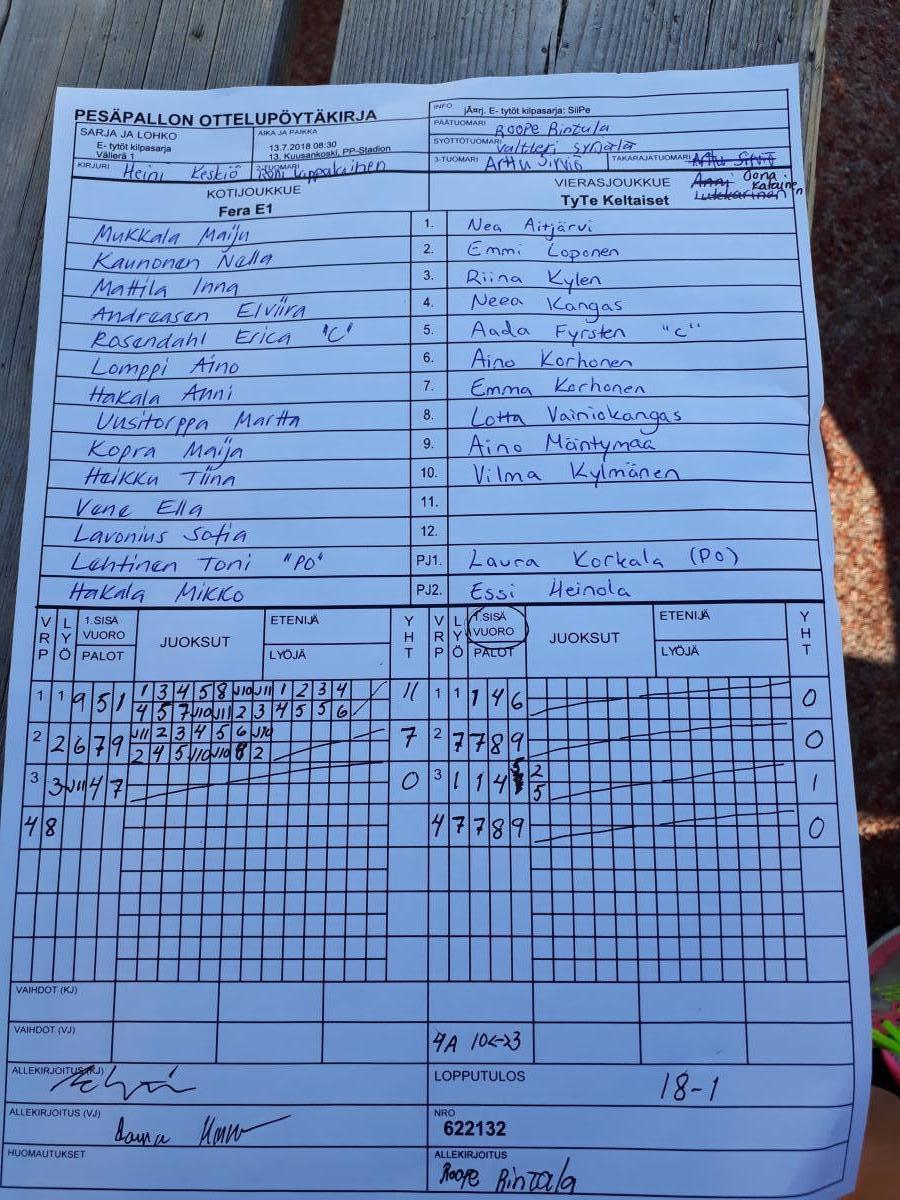 PESÄPALLON OTTELUPÖYTÄKIRJA
SARJA JA LOHKO
E- tytöt kilpasarja
Välierä 1
AIKA JA PAIKKA
13.7.2018 08:30
13, Kuusankoski, PP-Stadion
KIRJURI Heini Keskiö
2-TUOMARI
INFO jÃ¤rj. E- tytöt kilpasarja: SiiPe
PÄÄTUOMARI Roope Rintala
SYÖTTÖTUOMARI Valtteri
3-TUOMARI Arttu Sirviö
TAKARAJATUOMARI Arttu Sirviö
KOTIJOUKKUE
Fera E1
VIERASJOUKKUE
TyTe Keltaiset
Mukkala Maiju 1. Nea Aitjärvi
Kaunonen Nella 2. Emmi Loponen
Mattila Inna 3. Riina Kylen
Andreasen Elviira 4. Neea Kangas
Rosendahl Erica "C" 5. Aada Fyrsten "C"
Lomppi Aino 6. Aino Korhonen
Hakala Anni 7. Emma Korhonen
Uusitorppa Martta 8. Lotta Vainiokangas
Kopra Maija 9. Aino Mäntymaa
Heikku Tiina 10. Vilma Kylmänen
Vene Ella 11.
Lavonius Sofia 12.
Lehtinen Toni "PO" PJ1. Laura Korkala (PO)
Hakala Mikko PJ2. Essi Heinola
VRP LYÖ 1.SISÄ VUORO PALOT JUOKSUT ETENIJÄ LYÖJÄ YHT VRP LYÖ 1.SISÄ VUORO PALOT JUOKSUT ETENIJÄ LYÖJÄ YHT
1 1 9 5 1 1 3 4 5 8 J10 J11 1 2 3 4 11 1 1 1 4 6 0
4 5 7 J10 J11 2 3 4 5 5 6
2 2 6 7 9 J11 2 3 4 5 6 J10 7 2 7 7 8 9 0
2 4 5 J10 J10 8 2
3 3 J11 4 7 0 3 1 1 4 5 2 1
5
4 8 4 7 7 8 9 0
VAIHDOT (KJ)
VAIHDOT (VJ) 4A 10<->3
ALLEKIRJOITUS (KJ)
LOPPUTULOS 18-1
ALLEKIRJOITUS (VJ)
NRO
622132
HUOMAUTUKSET
ALLEKIRJOITUS
Roope Rintala